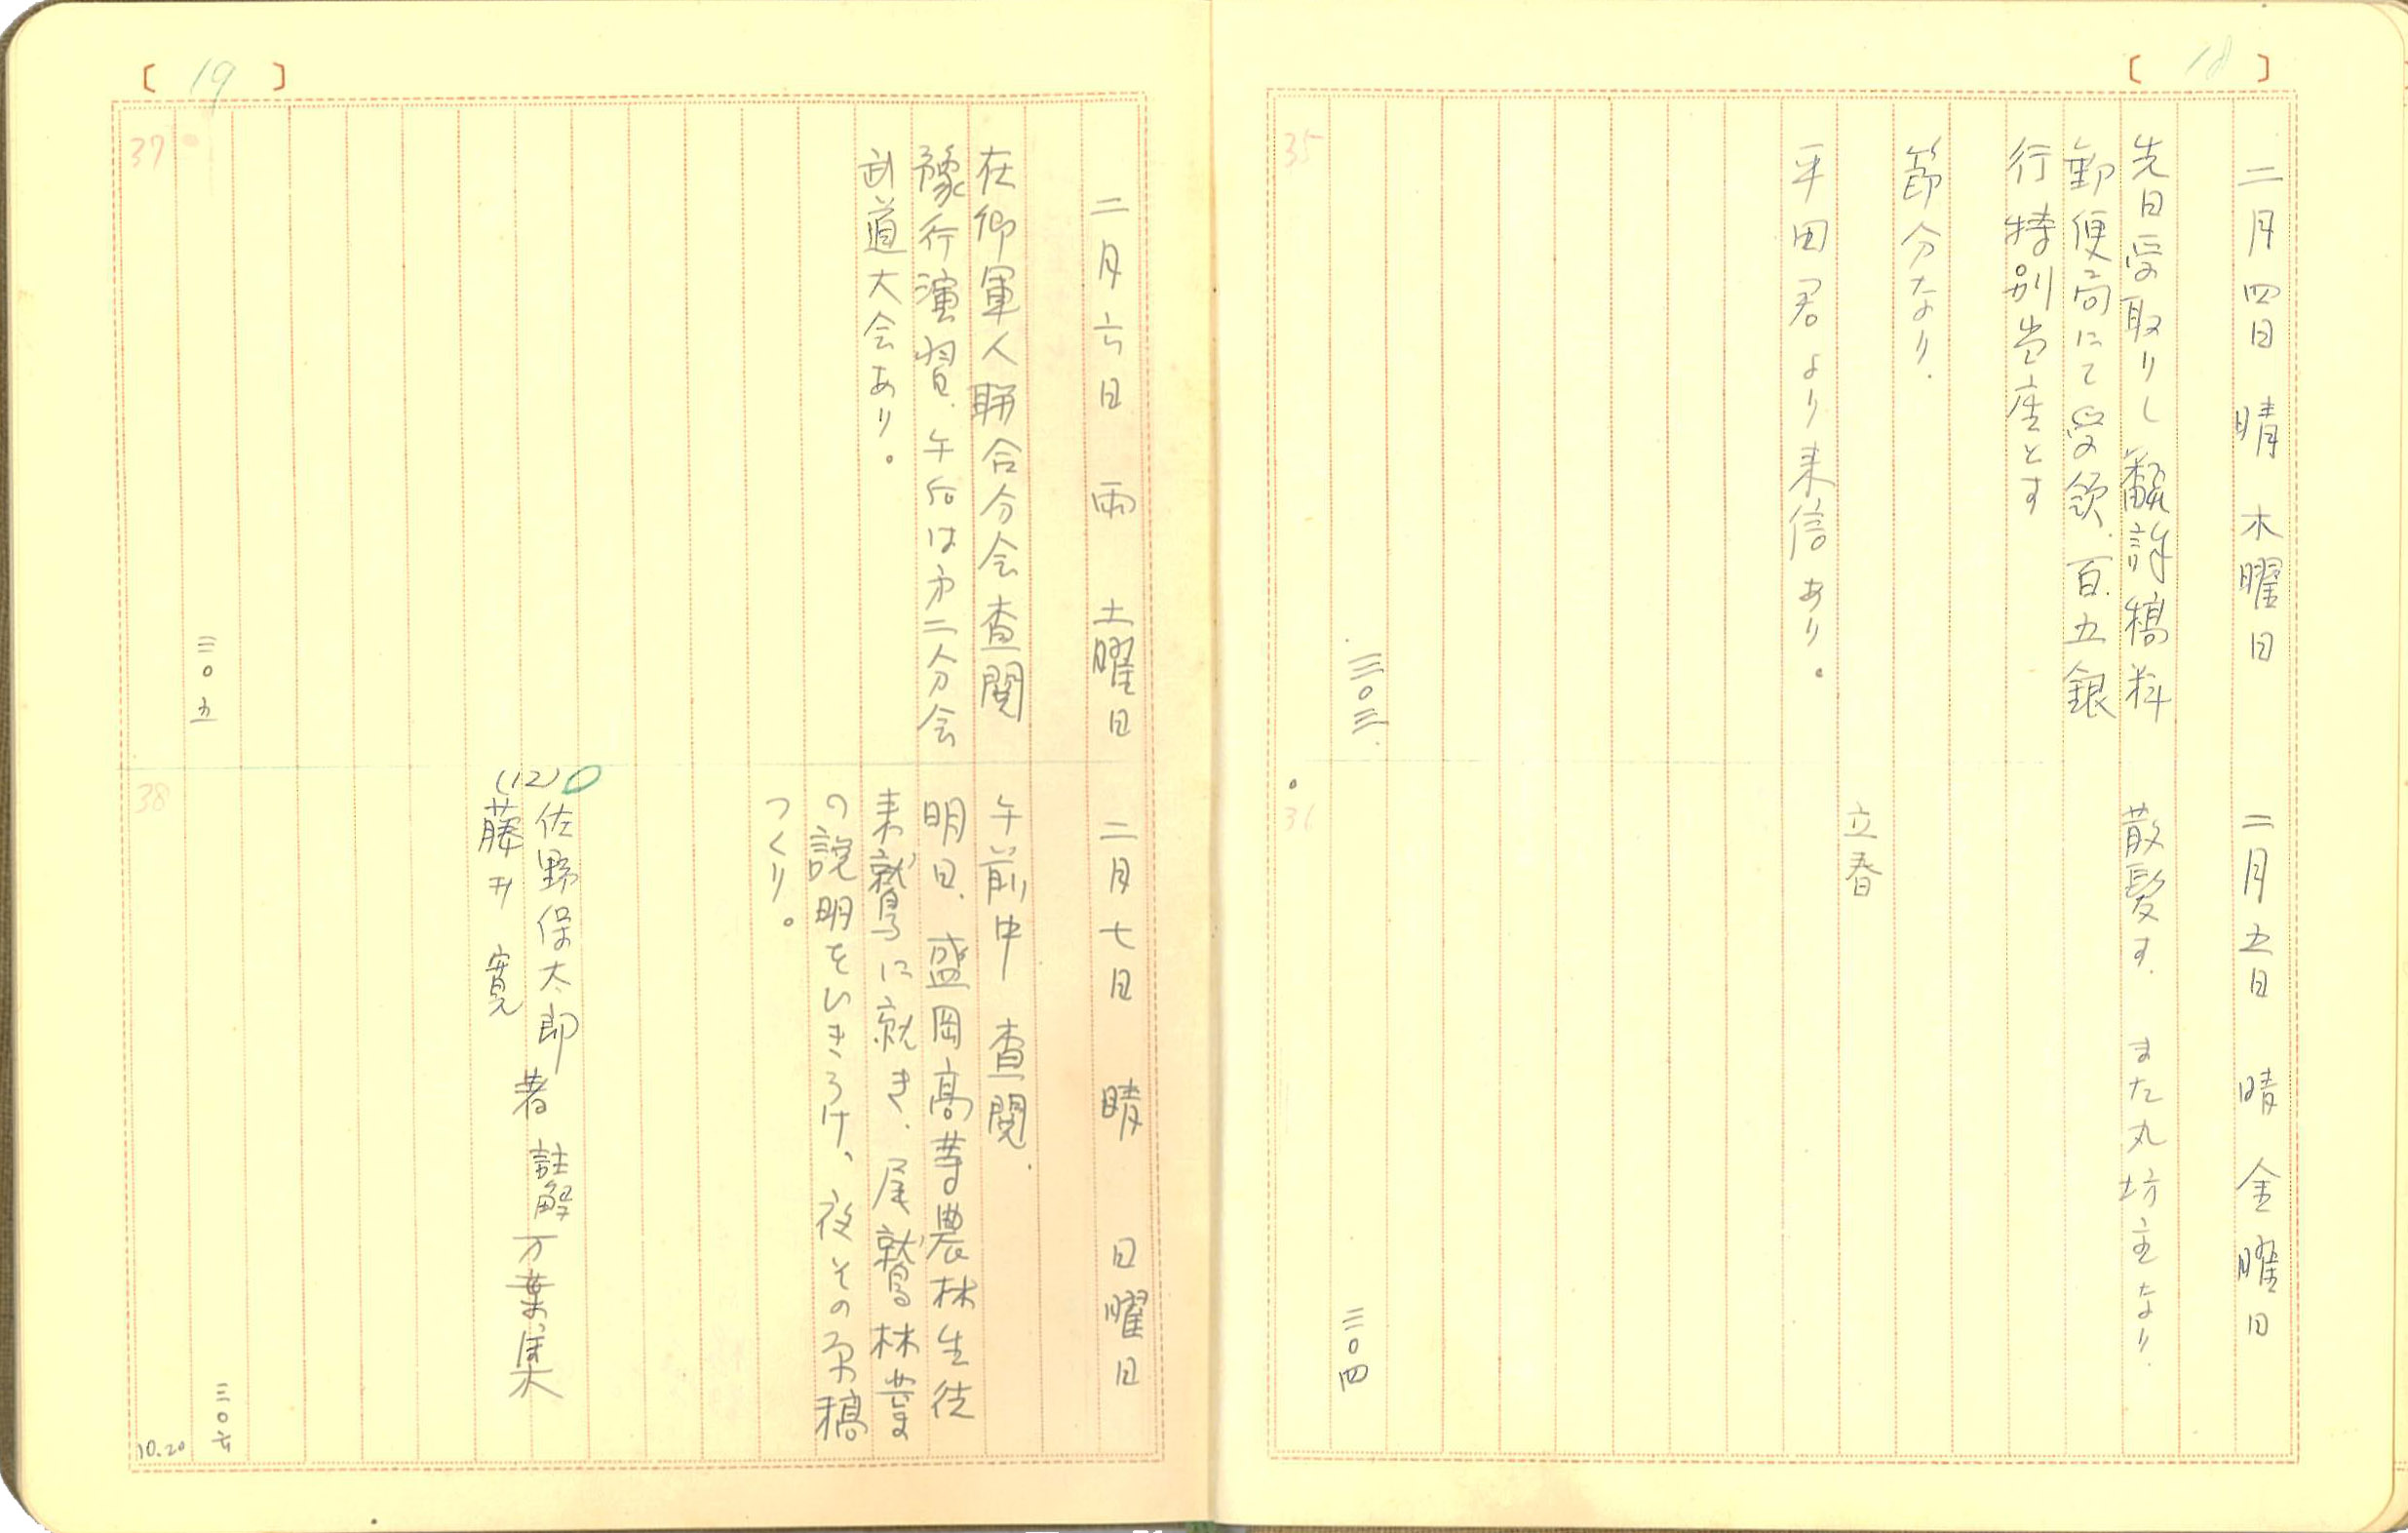 [ 18 ]
35
二月四日 晴 木曜日
先日受取りし飜訳稿料
郵便局にて受領、百五銀
行特別当座とす
節分なり.
平田君より来信あり。
三〇三.
36
二月五日 晴 金曜日
散髪す. また丸坊主なり.
立春
三〇四
[ 19 ]
37
二月六日 雨 土曜日
在郷軍人聯合分会査閲
豫行演習. 午后は才二分会
武道大会あり。
三〇五
38
二月七日 晴 日曜日
午前中 査閲.
明日. 盛岡高等農林生徒
来鷲に就き. 尾鷲林業
の説明をひきうけ、夜その原稿
つくり。
(12) 佐野保太郎 著 註解万葉集
藤井 寛
三〇六
10.20